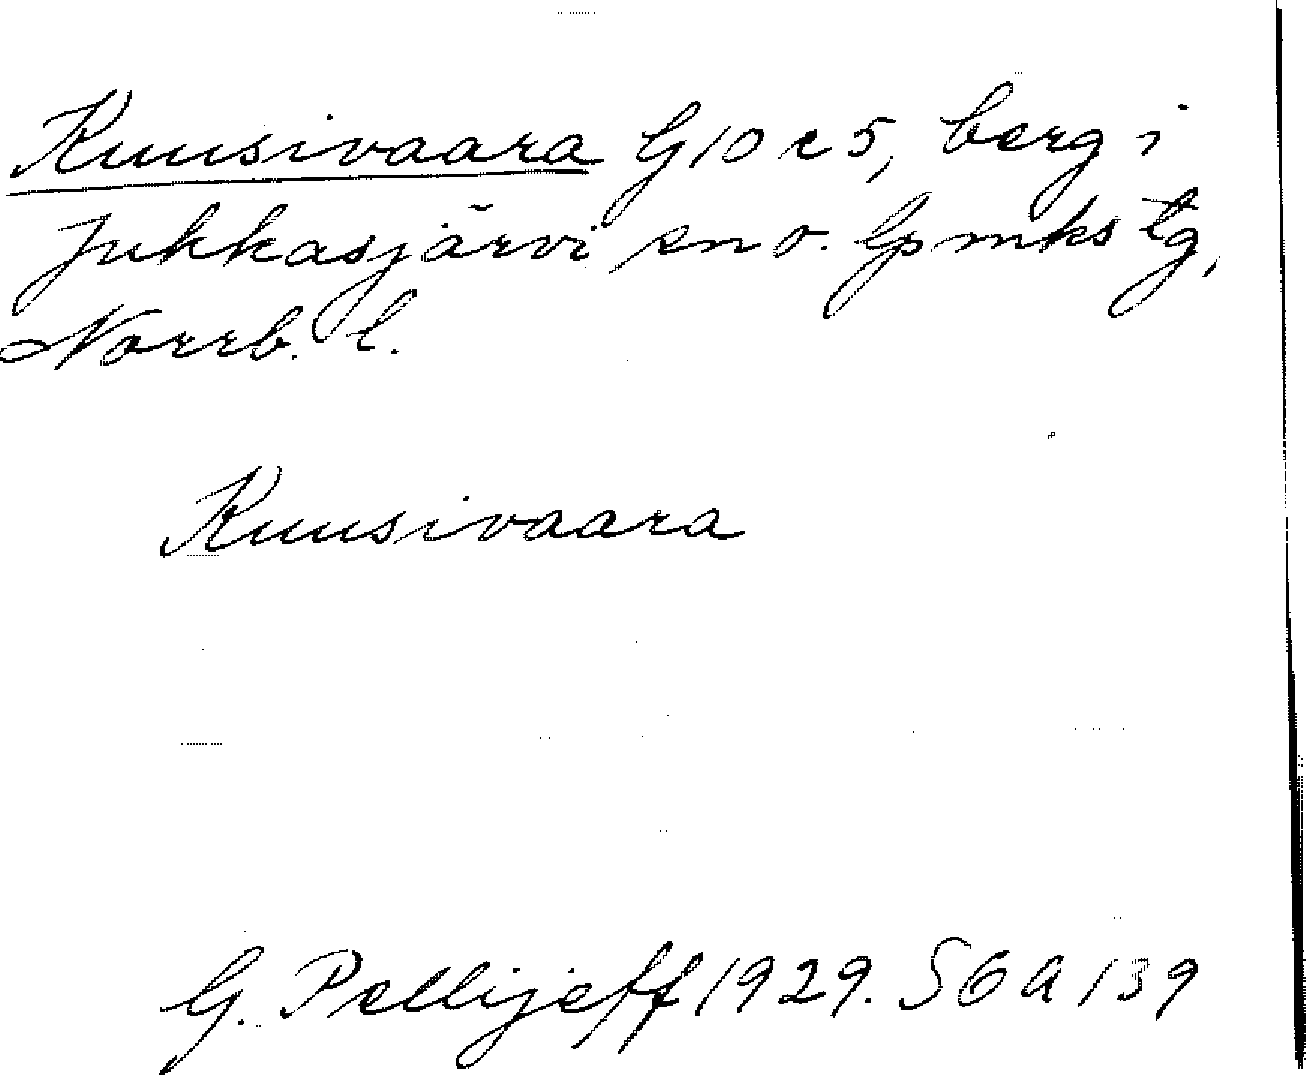 Kuusivaara G10c5, berg i
Jukkasjärvi sn o. lpmks tg,
Norrb. l.
Kuusivaara
G. Pellijeff 1929. SGA 139